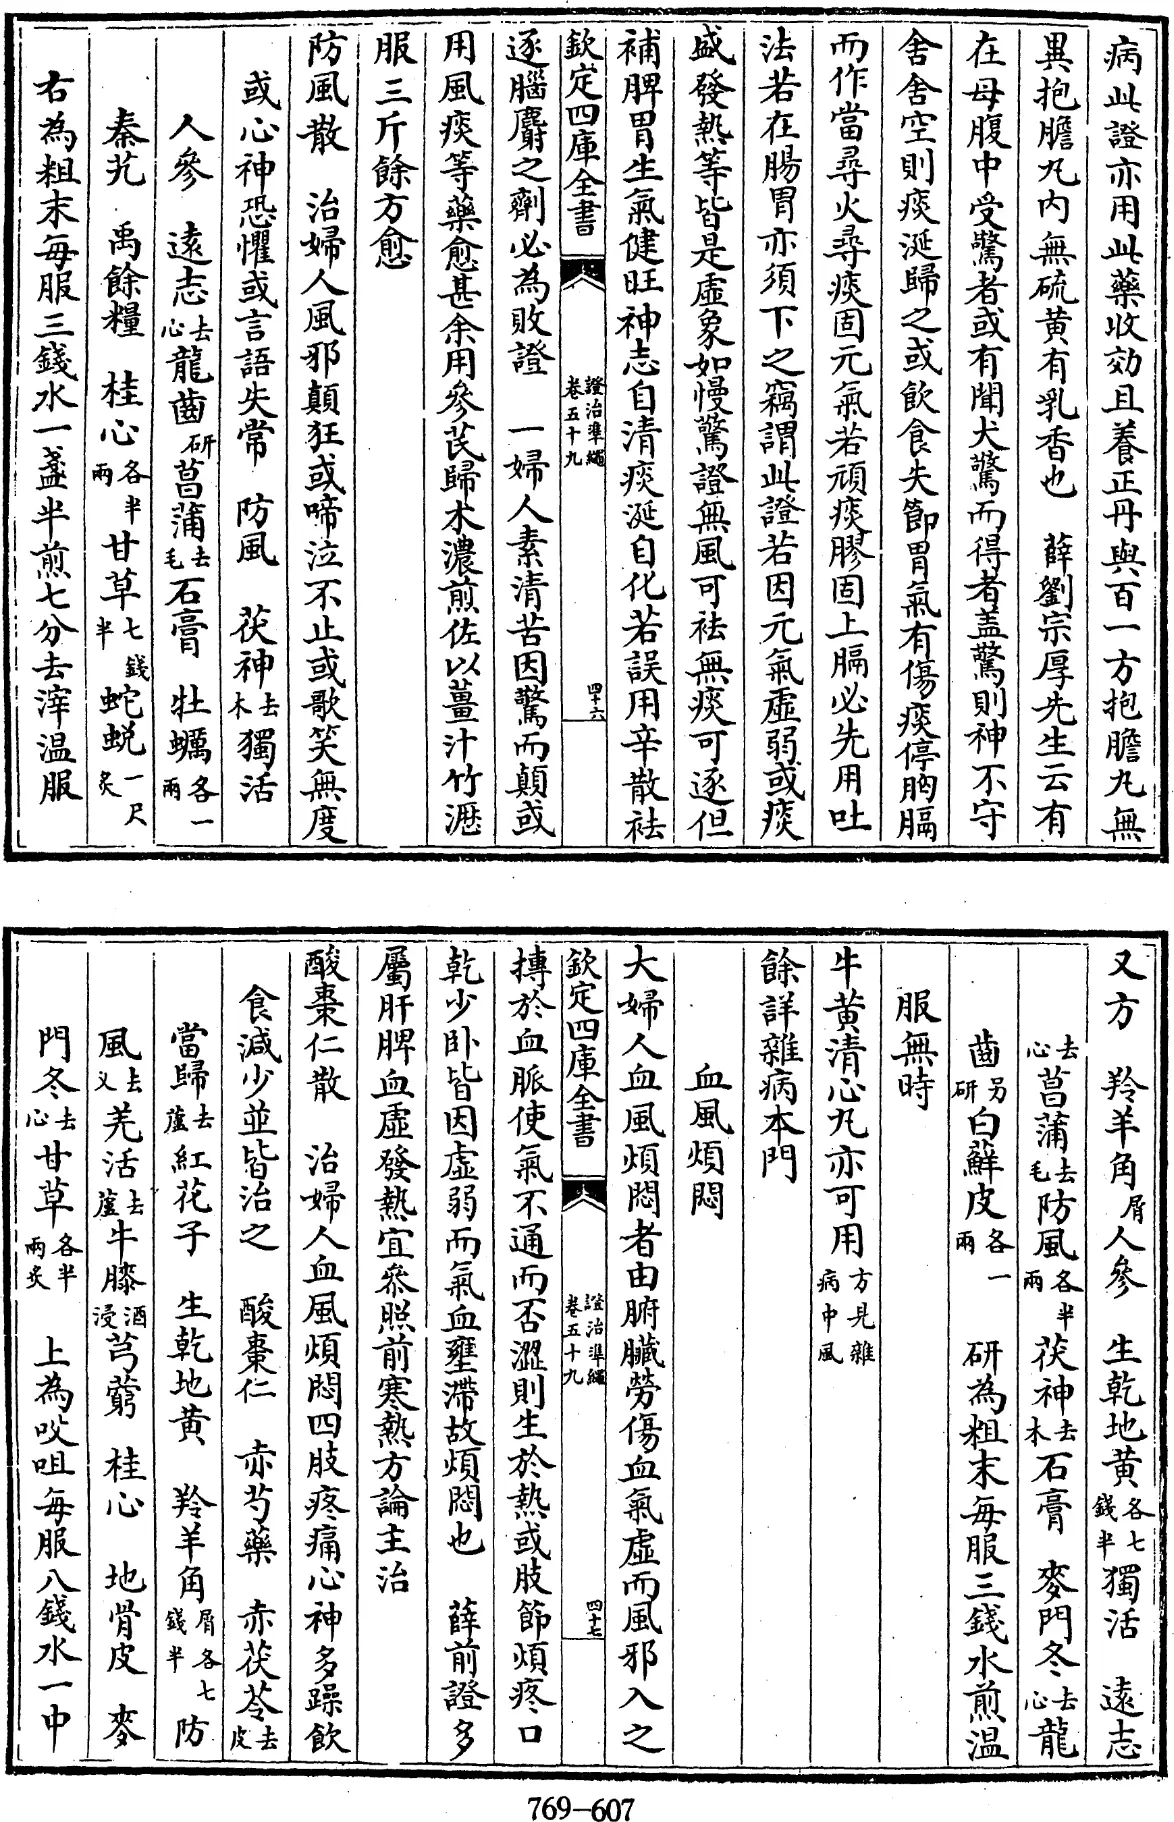 病此證亦用此藥收効且養正丹與百一方抱膽丸無
異抱膽丸内無硫黄有乳香也　薛劉宗厚先生云有
在母腹中受驚者或有聞犬驚而得者盖驚則神不守
舍舍空則痰涎歸之或飲食失節胃氣有傷痰停胸膈
而作當尋火尋痰固元氣若頑痰膠固上膈必先用吐
法若在腸胃亦須下之竊謂此證若因元氣虛弱或痰
盛發熱等皆是虛象如慢驚證無風可袪無痰可逐但
補脾胃生氣健旺神志自清痰涎自化若誤用辛散袪
欽定四庫全書　證治準繩卷五十九　四十六
逐腦麝之劑必為敗證　一婦人素清苦因驚而顛或
用風痰等藥愈甚余用參芪歸术濃煎佐以薑汁竹瀝
服三斤餘方愈
防風散　治婦人風邪顛狂或啼泣不止或歌笑無度
或心神恐懼或言語失常　防風　茯神去木獨活
人參　遠志去心龍齒研菖蒲去毛石膏　牡蠣各一兩
秦艽　禹餘糧　桂心各半兩甘草七錢半蛇蛻一尺炙
右為粗末每服三錢水一盞半煎七分去滓温服
又方　羚羊角屑人參　生乾地黄各七錢半獨活　遠志
去心菖蒲去毛防風各半兩茯神去木石膏　麥門冬去心龍
齒另研白蘚皮各一兩　研為粗末每服三錢水煎温
服無時
牛黄清心丸亦可用方見雜病中風
餘詳雜病本門
血風煩悶
大婦人血風煩悶者由腑臓勞傷血氣虛而風邪入之
搏於血脈使氣不通而否澀則生於熱或肢節煩疼口
欽定四庫全書　證治準繩卷五十九　四十七
乾少卧皆因虛弱而氣血壅滯故煩悶也　薛前證多
屬肝脾血虛發熱宜叅照前寒熱方論主治
酸棗仁散　治婦人血風煩悶四肢疼痛心神多躁飲
食減少並皆治之　酸棗仁　赤芍藥　赤茯苓去皮
當歸去蘆紅花子　生乾地黄　羚羊角屑各七錢半防
風去乂羌活去蘆牛膝酒浸芎藭　桂心　地骨皮　麥
門冬去心甘草各半兩炙　上為㕮咀每服八錢水一中
769-607